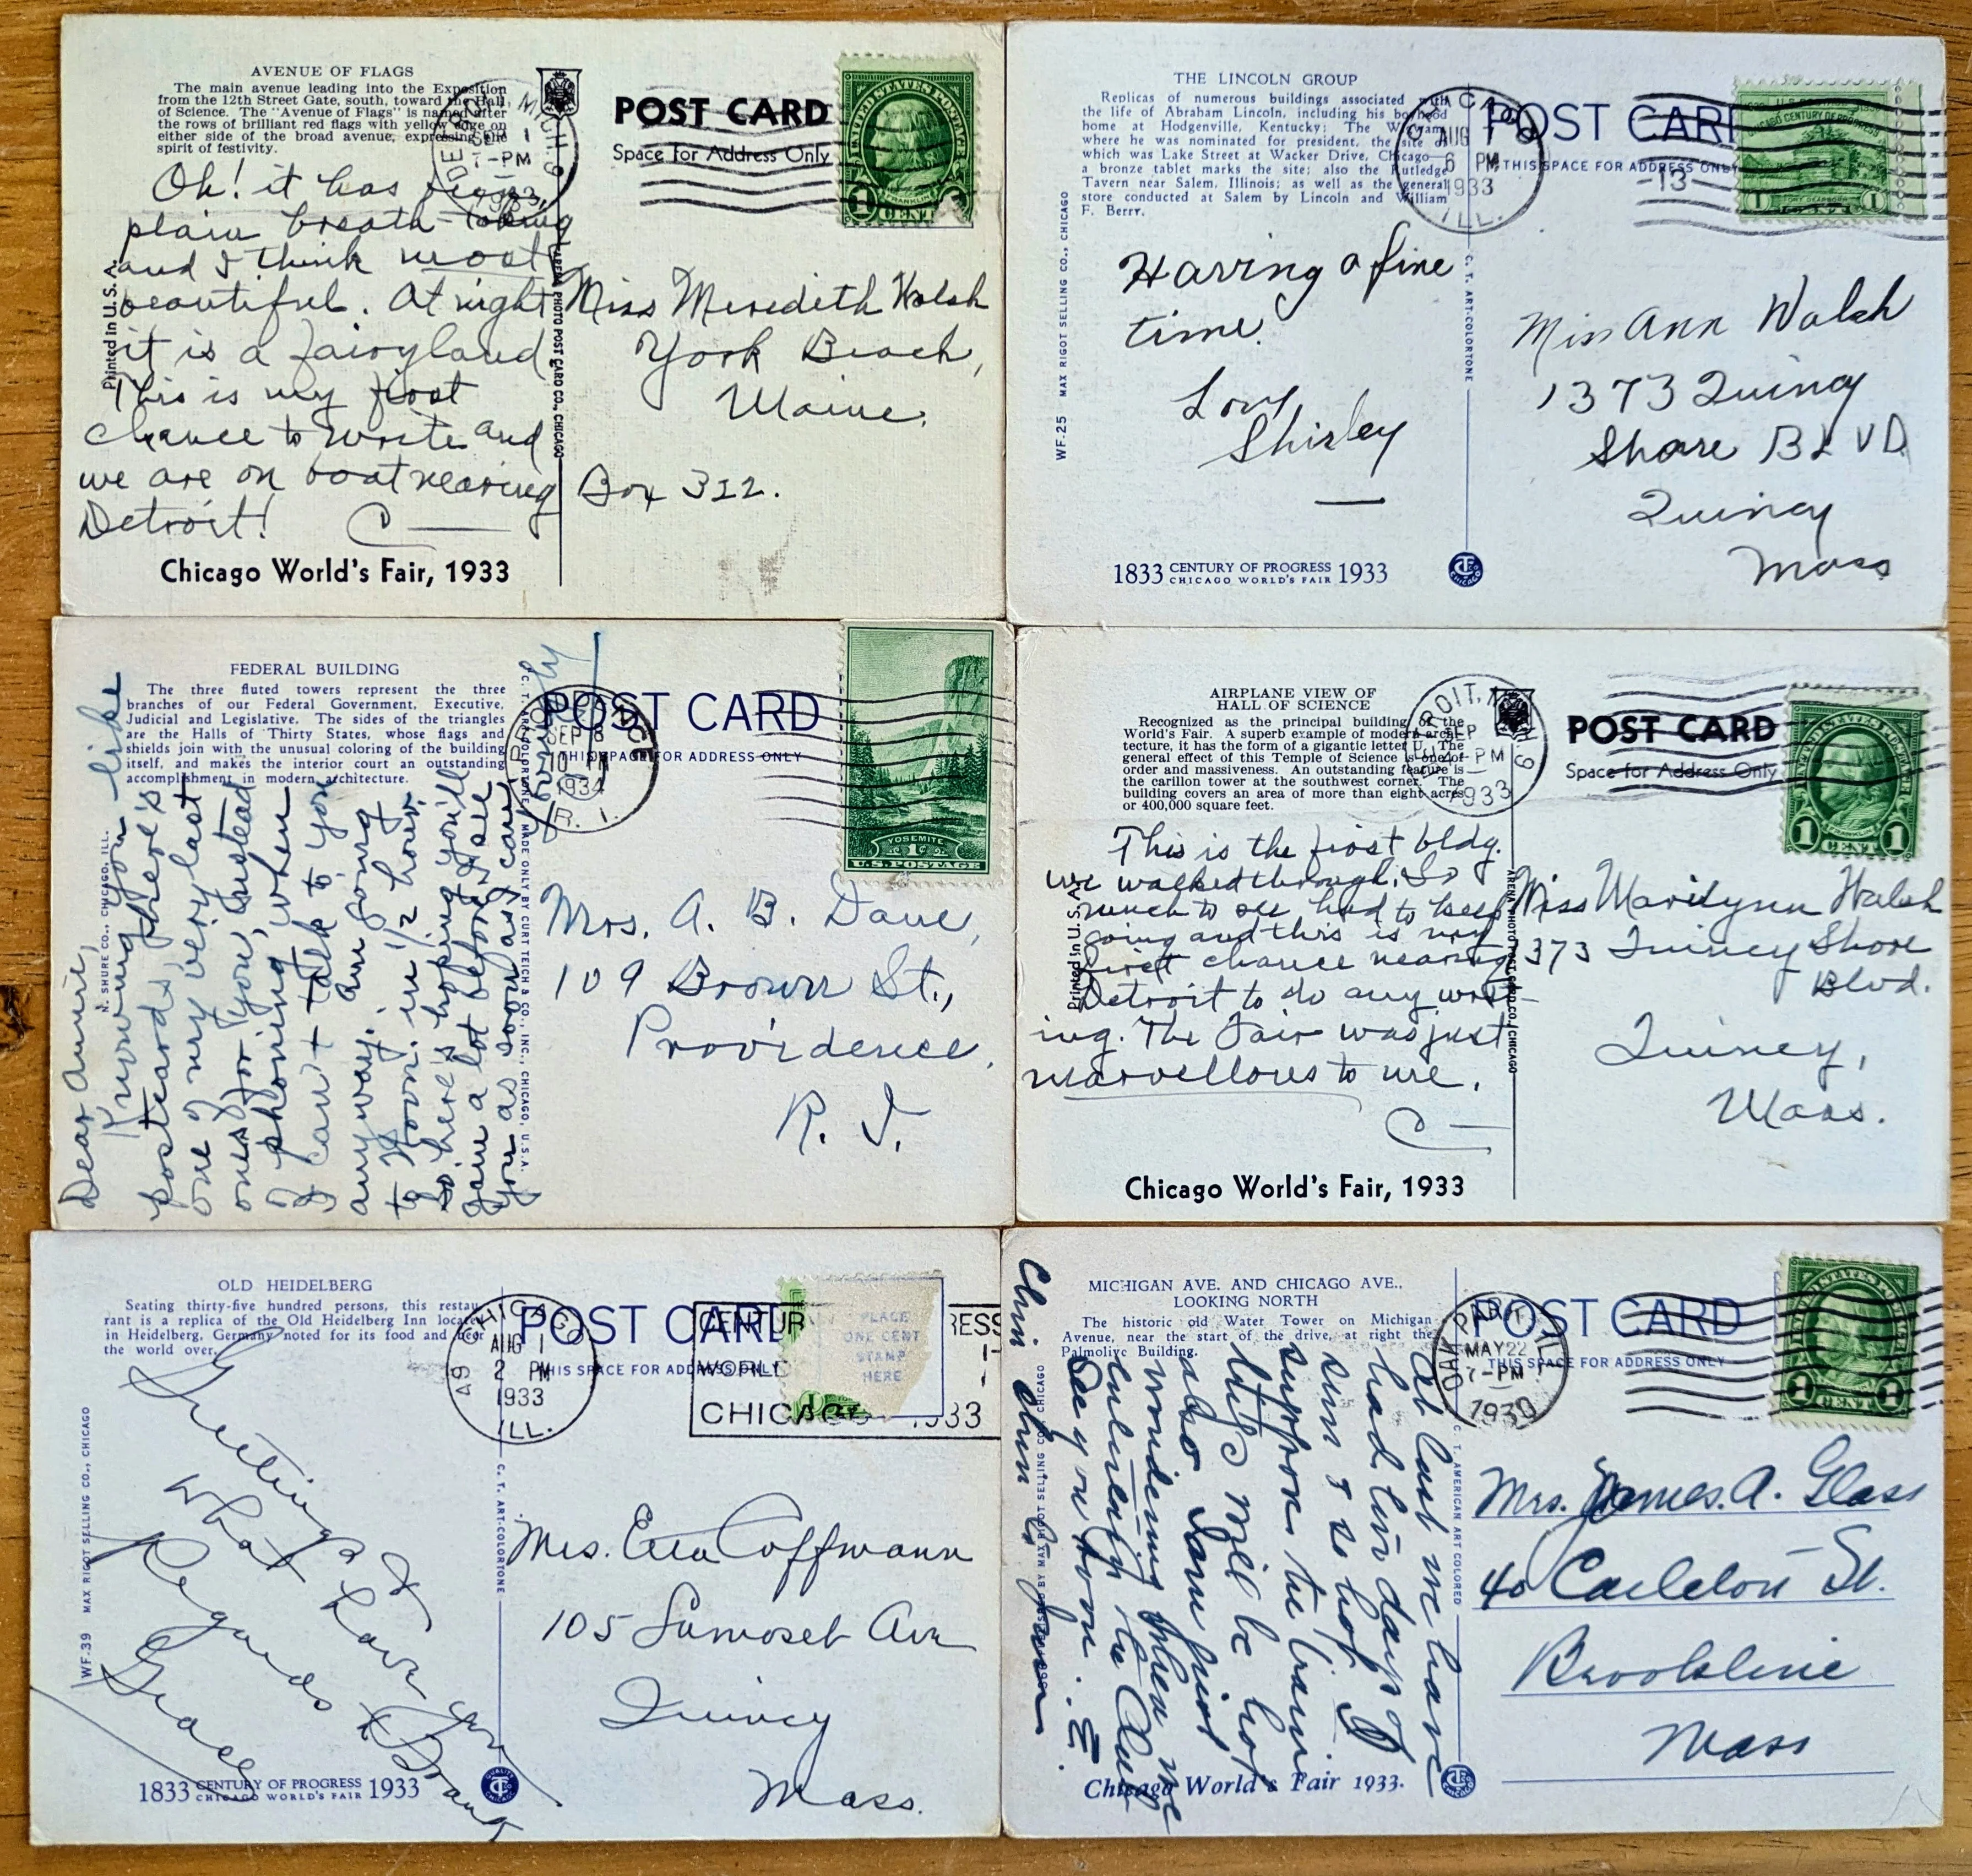 AVENUE OF FLAGS
The main avenue leading into the Exposition
from the 12th Street Gate, south, toward the Hall
of Science. The "Avenue of Flags" is named after
the rows of brilliant red flags with yellow edge on
either side of the broad avenue, expressing the
spirit of festivity.
Oh! it has
plain breath-taking
and I think most
beautiful. At night
it is a fairyland
This is my first
chance to write and
we are on boat nearing
Detroit!
C—
Chicago World's Fair, 1933
Printed in U.S.A.
PHOTO POST CARD CO., CHICAGO
MICH.
SEP 1
7-PM
1933
POST CARD
Space for Address Only
UNITED STATES POSTAGE
FRANKLIN
1 CENT
Miss Meredith Walsh
York Beach,
Maine.
Box 312.
THE LINCOLN GROUP
Replicas of numerous buildings associated with
the life of Abraham Lincoln, including his boyhood
home at Hodgenville, Kentucky; The Wigwam,
where he was nominated for president, the site of
which was Lake Street at Wacker Drive, Chicago—
a bronze tablet marks the site; also the Rutledge
Tavern near Salem, Illinois; as well as the general
store conducted at Salem by Lincoln and William
F. Berry.
Having a fine
time.
Love
Shirley
1833 CENTURY OF PROGRESS 1933
CHICAGO WORLD'S FAIR
WF.25 MAX RIGOT SELLING CO., CHICAGO
C. T. ART-COLORTONE
AUG
6 PM
1933
ILL.
POST CARD
THIS SPACE FOR ADDRESS ONLY
-13-
Miss Ann Walsh
1373 Quincy
Shore BLVD
Quincy
Mass
FEDERAL BUILDING
The three fluted towers represent the three
branches of our Federal Government, Executive,
Judicial and Legislative. The sides of the triangles
are the Halls of Thirty States, whose flags and
shields join with the unusual coloring of the building
itself, and makes the interior court an outstanding
accomplishment in modern architecture.
Dear Annie,
Knowing you like
postcards, here's
one of my very last
ones for you, instead
of phoning when
I can't talk to you
anyway. Am going
to Wor. in ½ hour
so here's hoping you'll
gain a lot before I see
you as soon as I can
N. SHURE CO., CHICAGO, ILL.
MADE ONLY BY CURT TEICH & CO., INC., CHICAGO, U.S.A.
SEP 8
1934
R. I.
POST CARD
THIS SPACE FOR ADDRESS ONLY
YOSEMITE
1¢
U.S. POSTAGE
Mrs. A. B. Dane,
109 Brown St.,
Providence,
R. I.
AIRPLANE VIEW OF
HALL OF SCIENCE
Recognized as the principal building of the
World's Fair. A superb example of modern archi-
tecture, it has the form of a gigantic letter U. The
general effect of this Temple of Science is one of
order and massiveness. An outstanding feature is
the carillon tower at the southwest corner. The
building covers an area of more than eight acres
or 400,000 square feet.
This is the first bldg.
we walked through. So
much to see had to keep
going and this is my
first chance nearing
Detroit to do any writ-
ing. The Fair was just
marvellous to me.
C—
Chicago World's Fair, 1933
Printed in U.S.A.
ARENA PHOTO POST CARD CO., CHICAGO
SEP
PM
1933
POST CARD
Space for Address Only
FRANKLIN
1 CENT 1
Miss Marilynn Walsh
1373 Quincy Shore
Blvd.
Quincy,
Mass.
OLD HEIDELBERG
Seating thirty-five hundred persons, this restau-
rant is a replica of the Old Heidelberg Inn located
in Heidelberg, Germany noted for its food and beer
the world over.
Greetings &
what have you
Regards
Grace
1833 CENTURY OF PROGRESS 1933
CHICAGO WORLD'S FAIR
WF.39 MAX RIGOT SELLING CO., CHICAGO
C. T. ART-COLORTONE
CHICAGO
AUG 1
2 PM
1933
ILL.
POST CARD
THIS SPACE FOR ADDRESS ONLY
PLACE
ONE CENT
STAMP
HERE
CHICAGO 1933
Mrs. Coffmann
105 Samoset Ave
Quincy
Mass.
MICHIGAN AVE. AND CHICAGO AVE.,
LOOKING NORTH
The historic old Water Tower on Michigan
Avenue, near the start of the drive, at right the
Palmolive Building.
At last we have
had two days of
sun & so hot. I
suppose the train
will be hot
also. Am just
wondering when we
See you soon. E.
Chicago World's Fair 1933.
C. T. AMERICAN ART COLORED
OAK PARK, ILL.
MAY 22
7-PM
POST CARD
THIS SPACE FOR ADDRESS ONLY
1 CENT 1
Mrs. James A. Glass
40 Carleton St.
Brookline
Mass